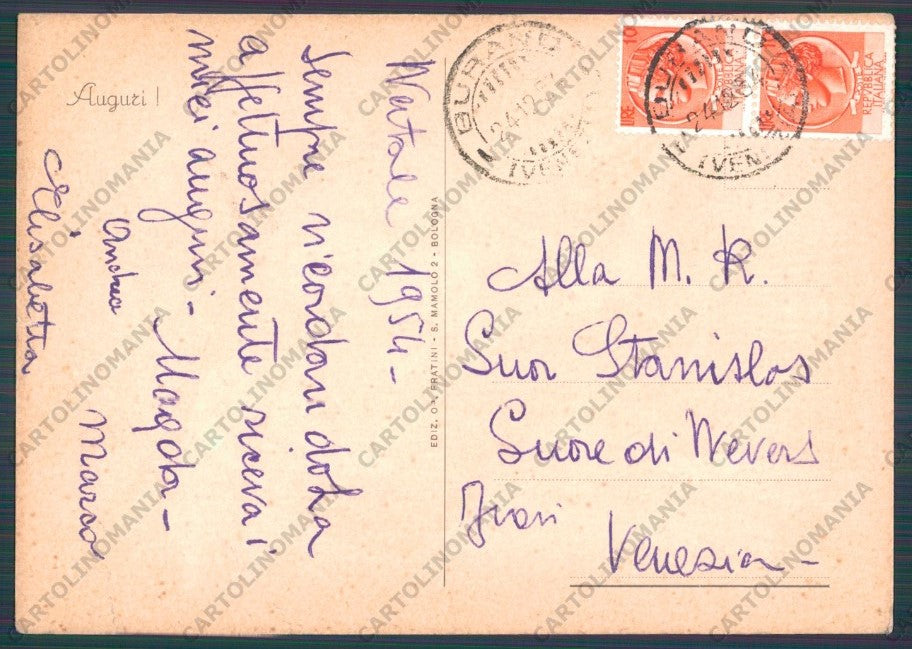 Auguri!
Natale 1954-
Sempre ricordandola
affettuosamente riceva i
miei auguri - Magda -
Andrea
Marco
Elisabetta
EDIZ. O. FRATINI - S. MAMOLO 2 - BOLOGNA
BURANO
24.12.5
(VEN
LIRE 10
REPVBBLICA
ITALIANA
BURANO
24.12.5
(VEN
REPVBBLICA
ITALIANA
Alla M. R.
Suor Stanislas
Suore di Nevers
Frari
Venezia -
CARTOLINOMANIA